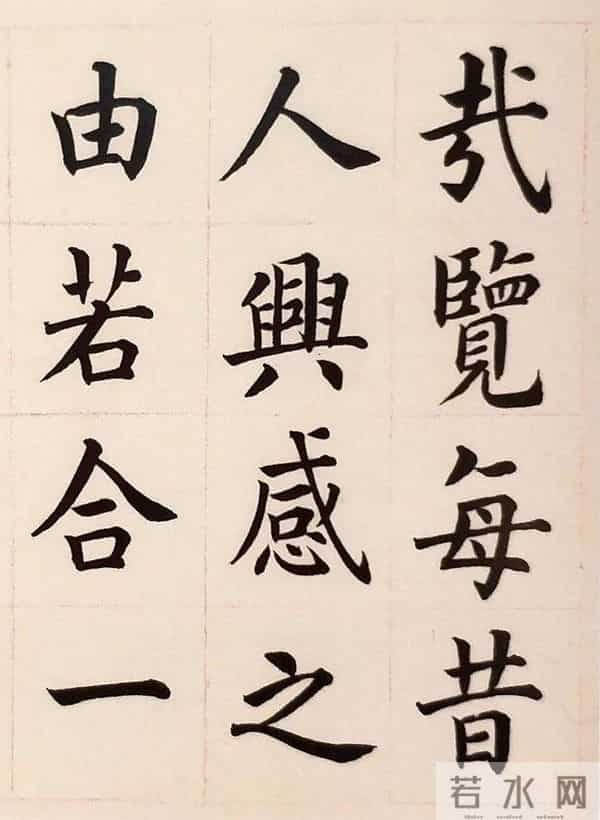 哉覽每昔
人興感之
由若合一
若水网